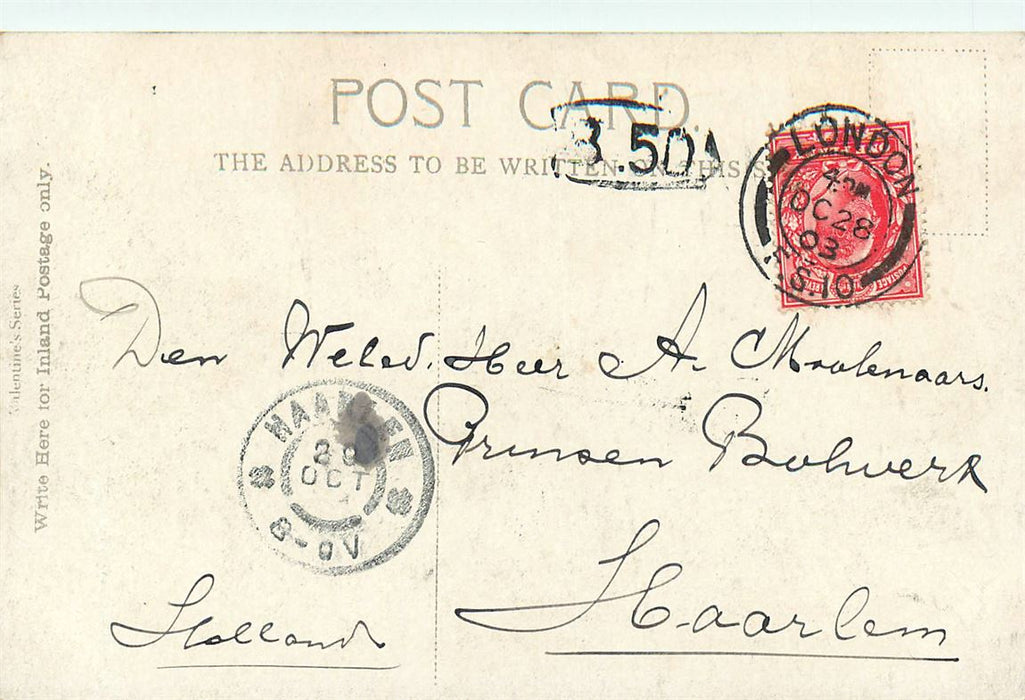 POST CARD.
THE ADDRESS TO BE WRITTEN ON THIS S
3.50
LONDON
4 PM
OC 28
03
S.10
POSTAGE
Den Weled. Heer A. Moolenaars.
Prinsen Bolwerk
Haarlem
Holland
HAA EN
29
OCT
8-9V
Valentine's Series
Write Here for Inland Postage only.